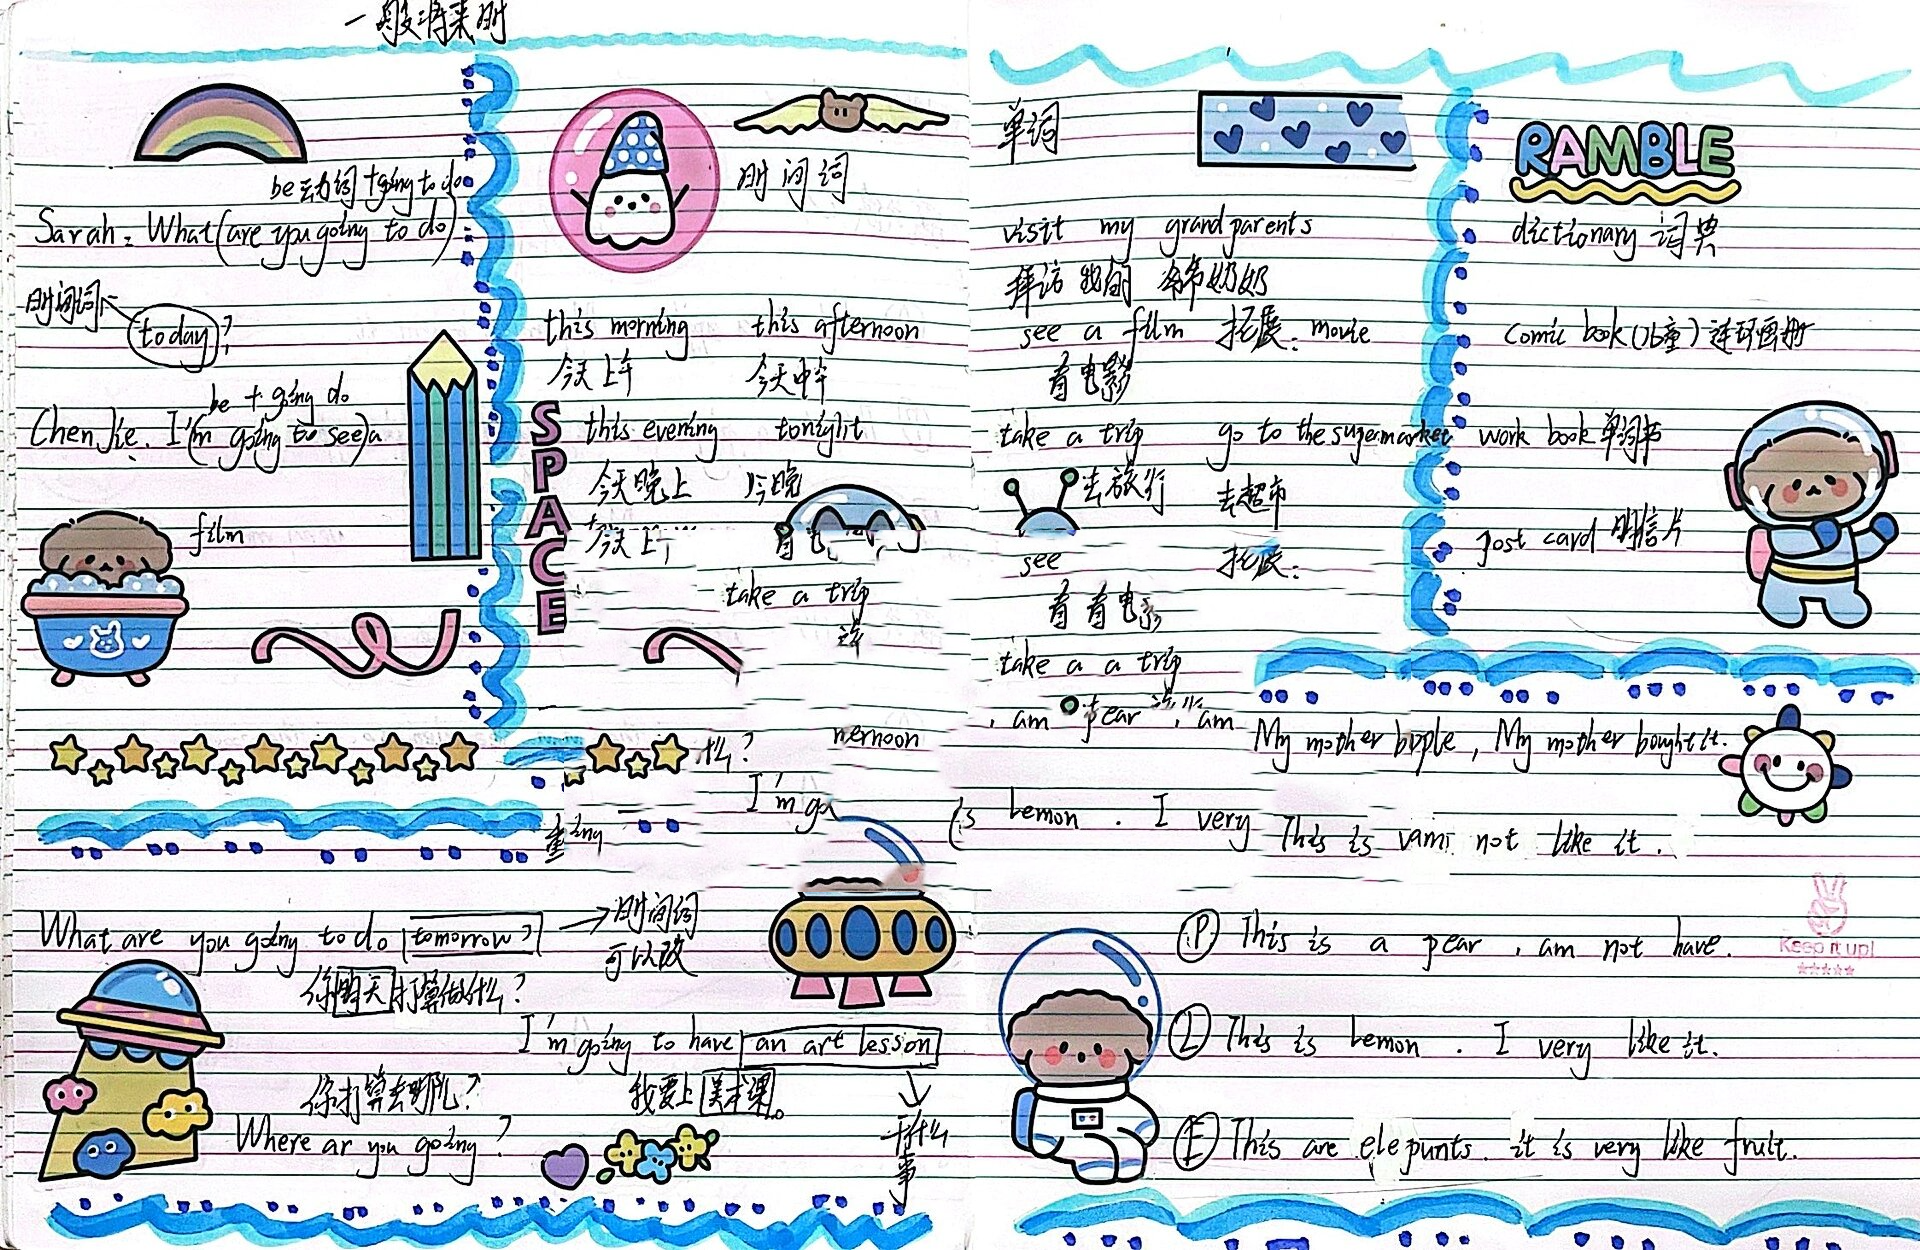 一般将来时
be动词+going to do
Sarah: What (are you going to do)
时间词
today?
be + going do
Chen Jie. I'(m going to see) a
film
时间词
this morning this afternoon
今天上午
this evening tonight
今天晚上 今晚
SPACE
take a trip
什么?
nernoon
I'm go
What are you going to do tomorrow?
时间词
可以改
你明天打算做什么?
I'm going to have an art lesson
我要上美术课。
干什么
事
你打算去哪儿?
Where ar you going?
单词
visit my grandparents
拜访我的爷爷奶奶
see a film 拓展: movie
看电影
take a trip go to the supermarket
去旅行 去超市
see 拓展:
take a a trip
am pear am
RAMBLE
dictionary 词典
comic book (儿童) 连环画册
work book 单词书
post card 明信片
My mother bpple, My mother bought it.
s lemon. I very This is vami not like it.
P This is a pear, am not have.
Keep it up!
L This is lemon. I very like it.
E This are elepunts. it is very like fruit.